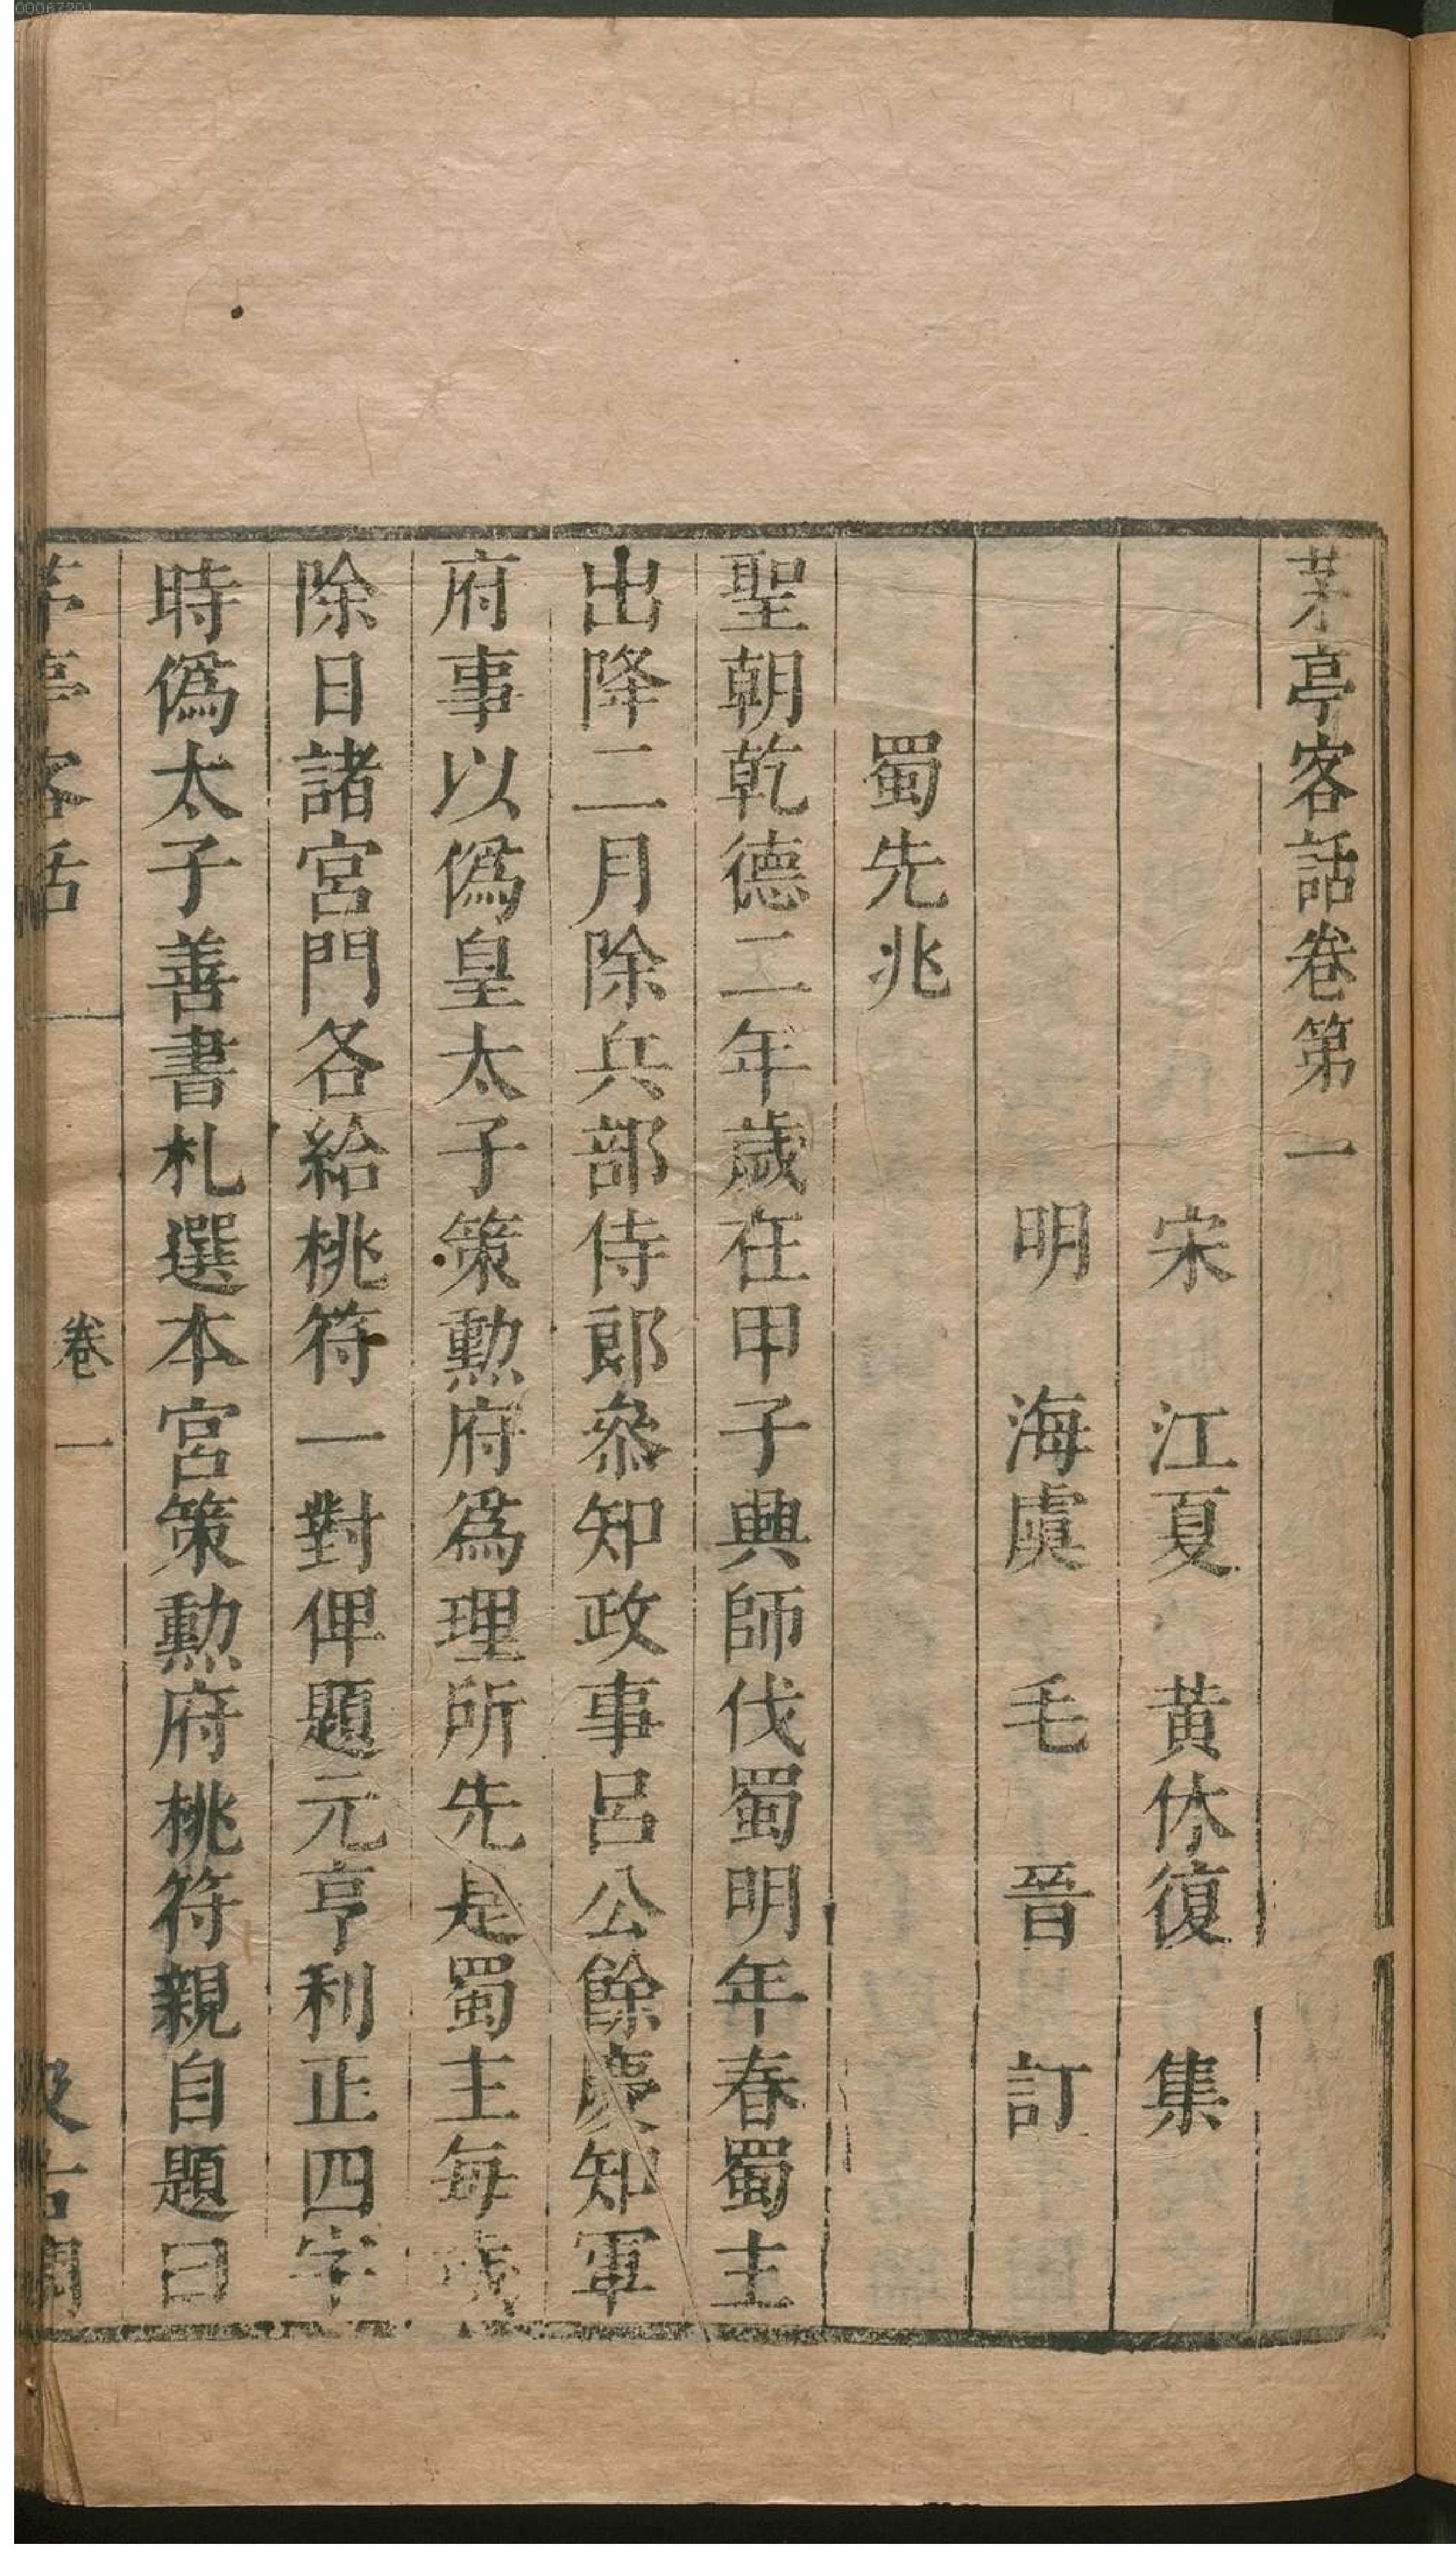 茅亭客話卷第一
宋　江夏　黃休復　集
明　海虞　毛　晉　訂
蜀先兆
聖朝乾德二年歲在甲子興師伐蜀明年春蜀主
出降二月除兵部侍郎叅知政事呂公餘慶知軍
府事以僞皇太子策勲府爲理所先是蜀主每歲
除日諸宮門各給桃符一對俾題元亨利正四字
時僞太子善書札選本宮策勲府桃符親自題曰
茅亭客話　卷一　汲古閣
00067201